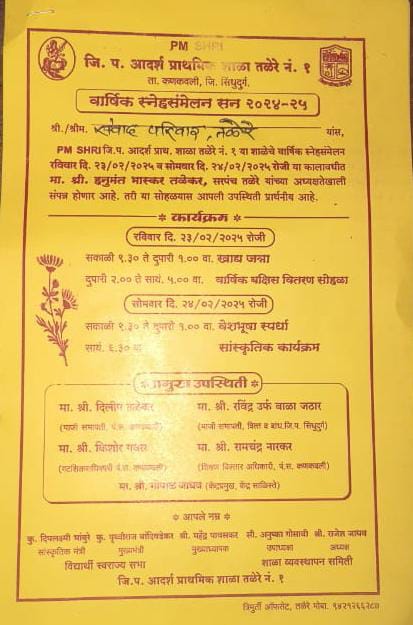 PM SHRI
जि. प. आदर्श प्राथमिक शाळा तळेरे नं. १
ता. कणकवली, जि. सिंधुदुर्ग.
वार्षिक स्नेहसंमेलन सन २०२४-२५
श्री./श्रीम. संवाद परिवार, तळेरे यांस,
PM SHRI जि.प. आदर्श प्राथ. शाळा तळेरे नं. १ या शाळेचे वार्षिक स्नेहसंमेलन
रविवार दि. २३/०२/२०२५ व सोमवार दि. २४/०२/२०२५ रोजी या कालावधीत
मा. श्री. हनुमंत भास्कर तळेकर, सरपंच तळेरे यांच्या अध्यक्षतेखाली
संपन्न होणार आहे. तरी या सोहळ्यास आपली उपस्थिती प्रार्थनीय आहे.
कार्यक्रम
रविवार दि. २३/०२/२०२५ रोजी
सकाळी ९.३० ते दुपारी १.०० वा. खाद्य जत्रा
दुपारी २.०० ते सायं. ५.०० वा. वार्षिक बक्षिस वितरण सोहळा
सोमवार दि. २४/०२/२०२५ रोजी
सकाळी ९.३० ते दुपारी १.०० वा. वेशभूषा स्पर्धा
सायं. ६.३० वा सांस्कृतिक कार्यक्रम
प्रमुख उपस्थिती
मा. श्री. दिलीप तळेकर मा. श्री. रविंद्र उर्फ बाळा जठार
(माजी सभापती, पं.स. कणकवली) (माजी सभापती, वित्त व बांध.जि.प. सिंधुदुर्ग)
मा. श्री. किशोर गवस मा. श्री. रामचंद्र नारकर
(गटशिक्षणाधिकारी पं.स. कणकवली) (शिक्षण विस्तार अधिकारी, पं.स. कणकवली)
मा. श्री. गोपाळ जाधव (केंद्रप्रमुख, केंद्र साळिस्ते)
आपले नम्र
कु. दिपलक्ष्मी भांबुरे कु. पृथ्वीराज बांदिवडेकर श्री. महेंद्र पावसकर सौ. अनुष्का गोसावी श्री. राजेश जाधव
सांस्कृतिक मंत्री मुख्यमंत्री मुख्याध्यापक उपाध्यक्षा अध्यक्ष
विद्यार्थी स्वराज्य सभा शाळा व्यवस्थापन समिती
जि.प. आदर्श प्राथमिक शाळा तळेरे नं. १
त्रिमुर्ती ऑफसेट, तळेरे मोबा. ९४२१२६६२८०